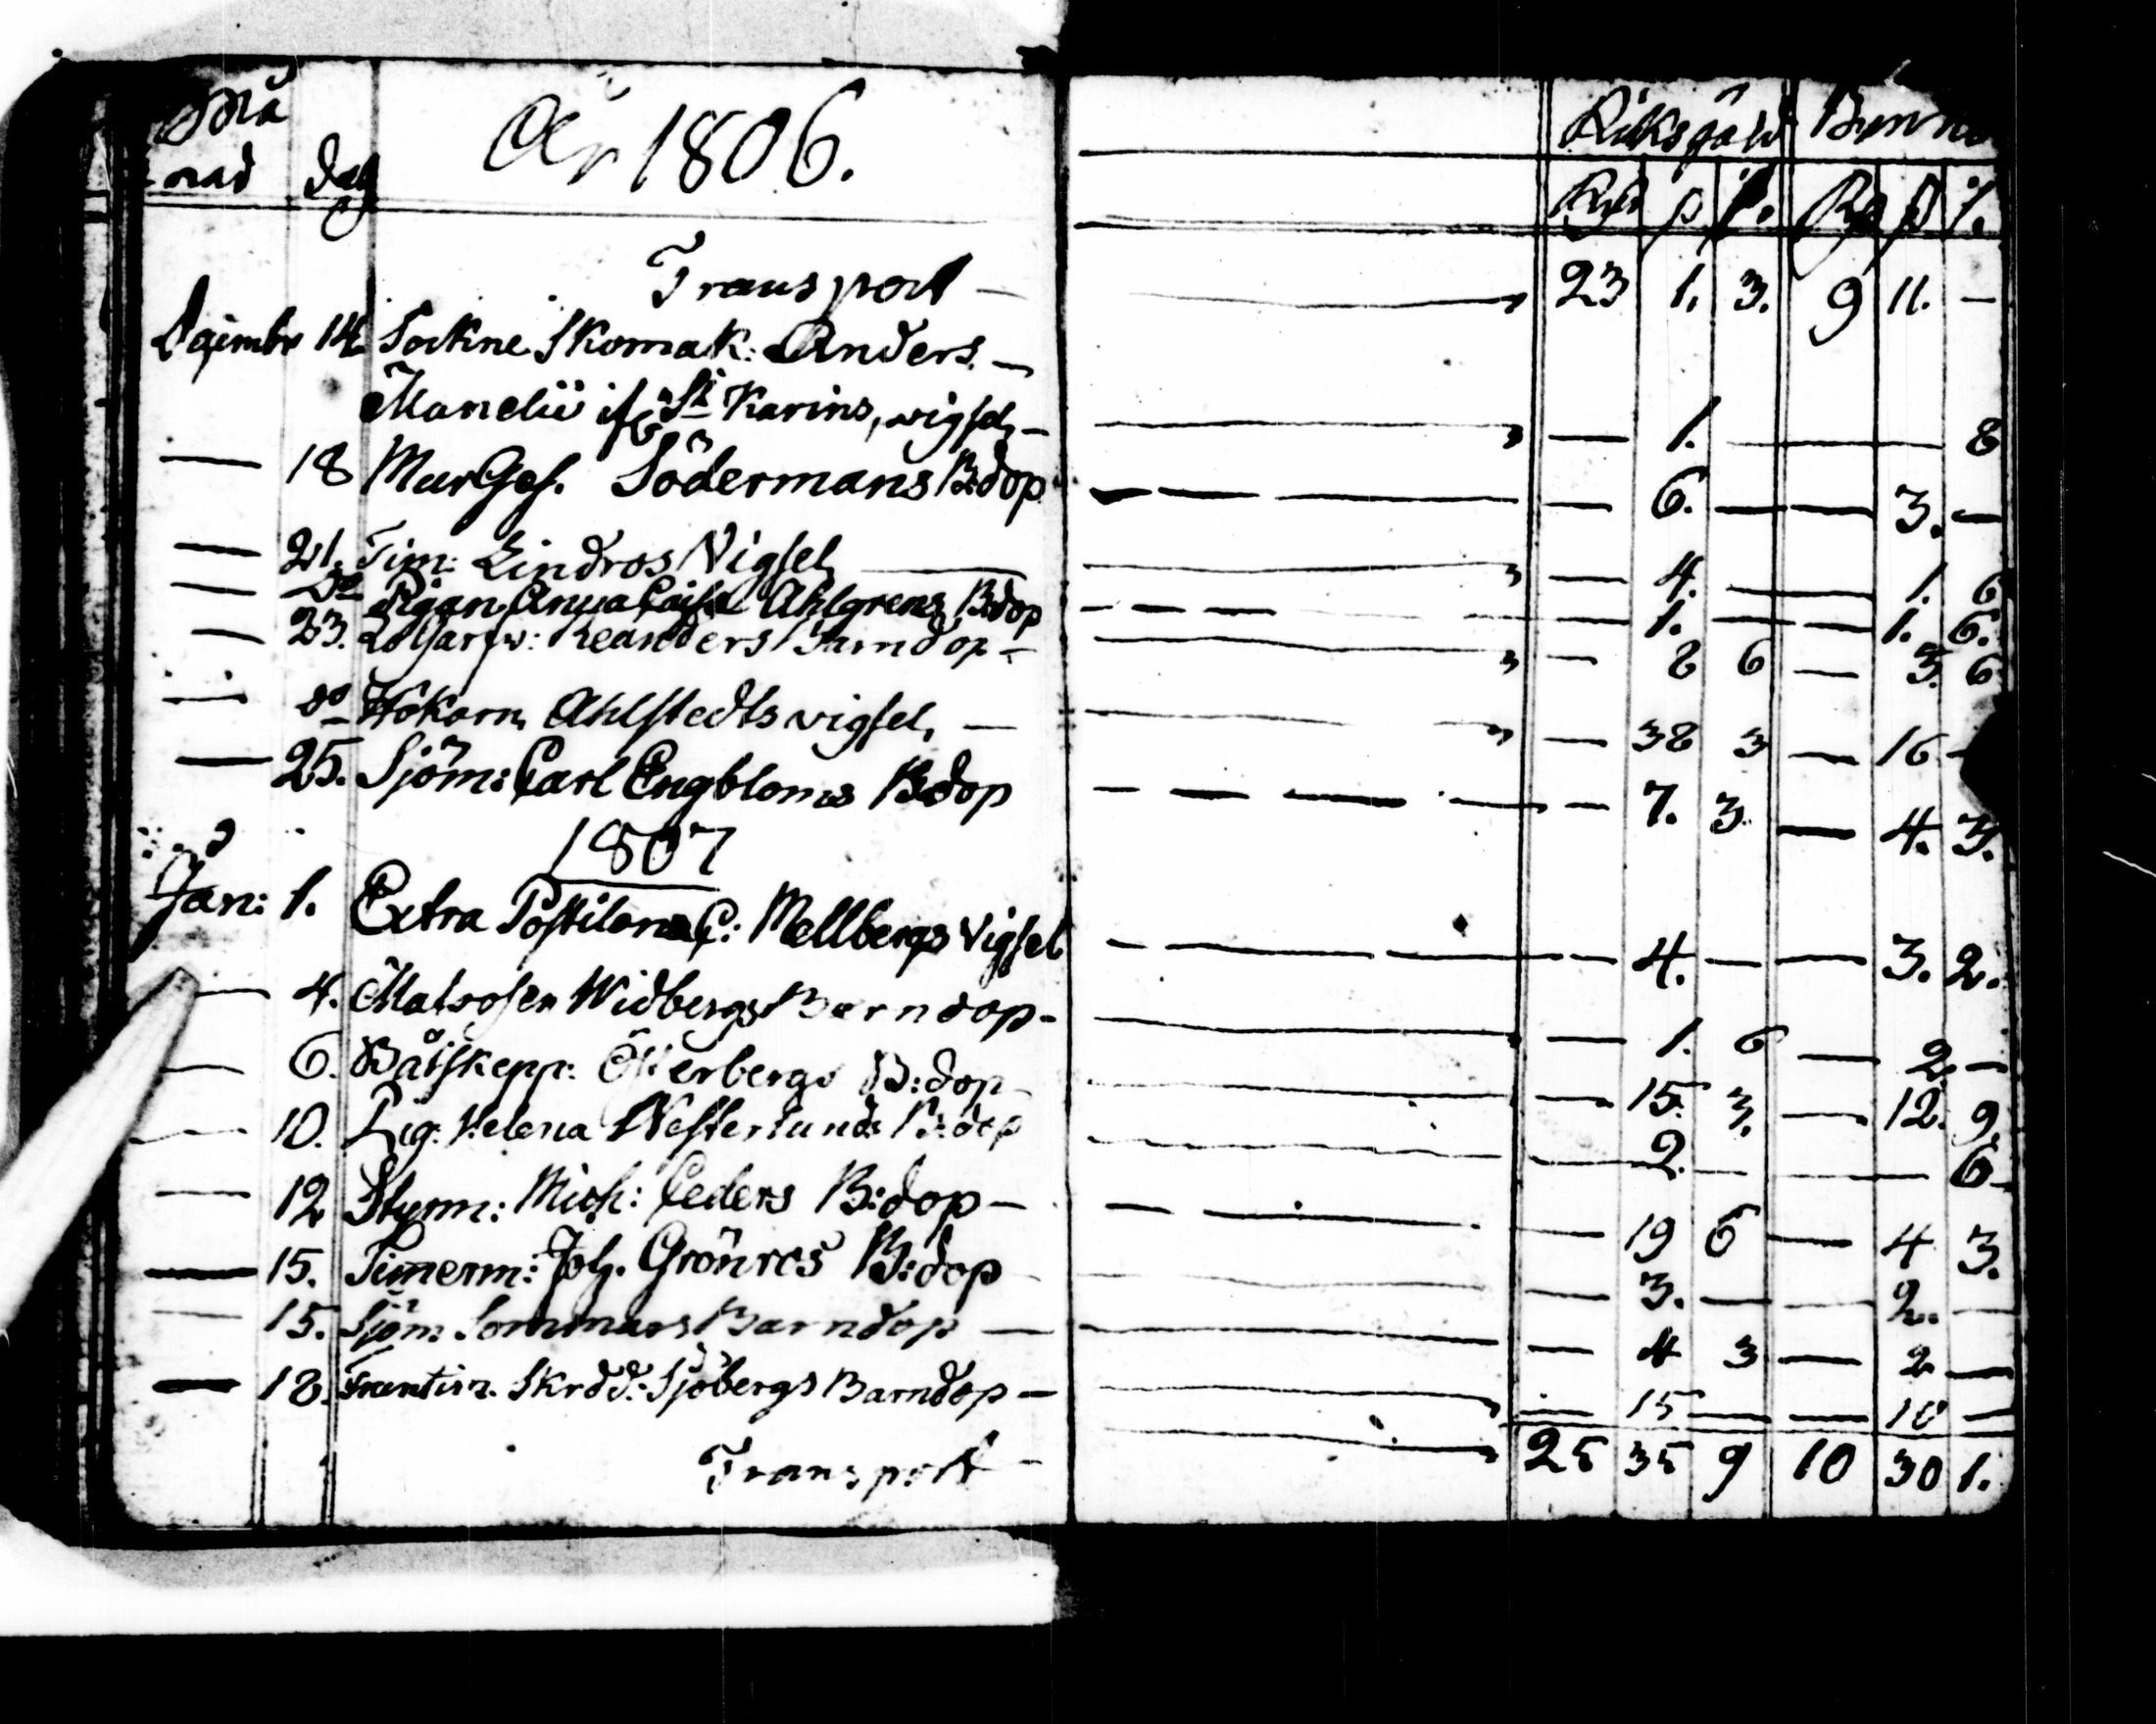 Må
nad dag År 1806. Riksgäld Banko
Rd ß r. Rd ß r.
Transport — 23 1. 3. 9 11. —
Decembr 14 Sockne Skomak: Anders —
Manelii ifr St Karins, vigsel, — — 1. — 8
— 18 MurGes. Södermans B:dop — 6. — — 3. —
— 21. Tim: Lindros Vigsel — 4. — 1. 6
— Do Pigan Anna Caisa Ahlgrens B:dop — 1. — — 1. 6.
— 23. Leanders Barndop — — 8 6 — 3. 6
— do Hökarn Ahlstedts vigsel, — — 38 3 — 16 —
— 25. Sjöm: Carl Engbloms B:dop — 7. 3. — 4. 3.
1807
Jan: 1. Extra Postilion C: Mellbergs Vigsel — 4. — — 3. 2.
— 4. Matrosen Widbergs Barndop — — 1. 6 — 2. —
— 6. Båtskepp: Österbergs B:dop — 15. 3. — 12. 9.
— 10. Pig. Helena Westerlunds B:dop — 2. — — 6
— 12 Styrm: Mich: Ceders B:dop — — 19 6 — 4 3.
— 15. Timerm: Joh. Grönros B:dop — 3. — — 2. —
— 15. Sjöm Sommars Barndop — — 4 3 — 2 —
— 18. Skrdd: Sjöbergs Barndop — — 15 — — 10 —
Transport — 25 35 9 10 30 1.